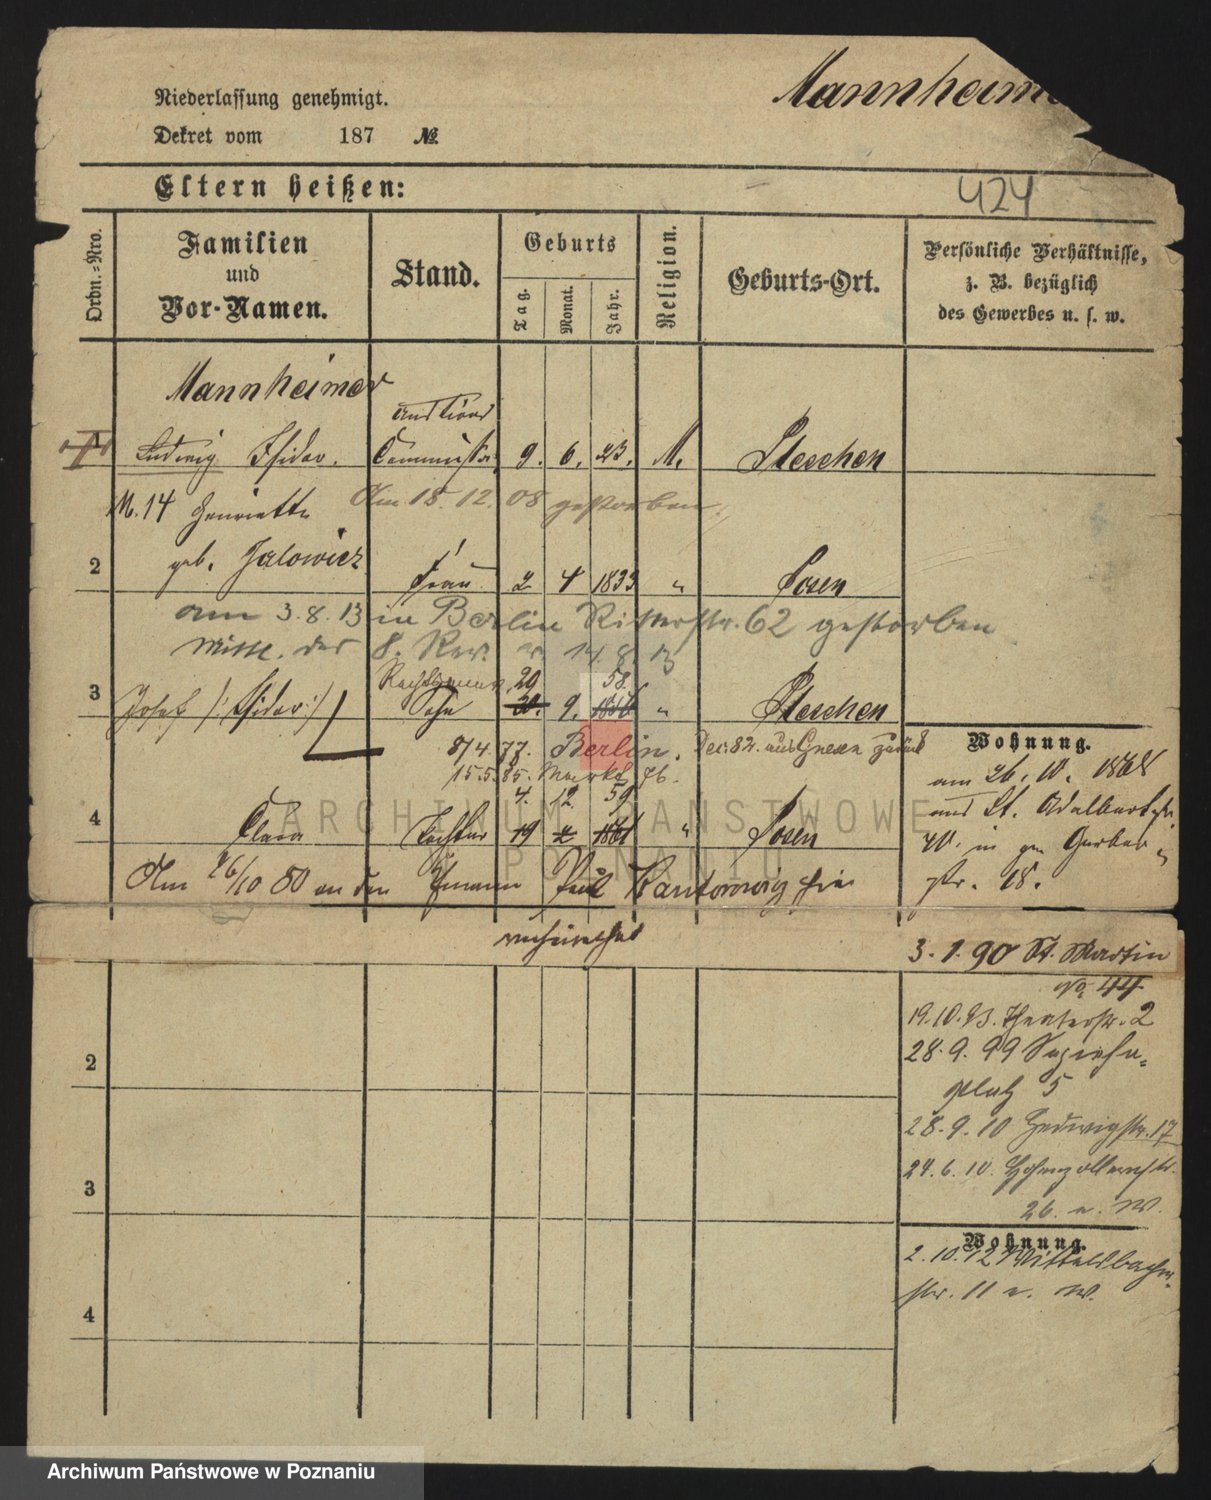 Mannheimer
Niederlassung genehmigt.
Dekret vom 187 №
Eltern heißen:
424
Ordn.-Nro.
Familien
und
Vor-Namen.
Stand.
Geburts
Tag.
Monat.
Jahr.
Religion.
Geburts-Ort.
Persönliche Verhältnisse,
z. B. bezüglich
des Gewerbes u. s. w.
Mannheimer
Ludwig Isidor. 9. 6. 23. M.
M. 14 Henriette Am 18. 12. 08 gestorben.
2 geb. Jalowicz Frau 2 4 1833 " Posen
am 3.8.13 in Berlin Ritterstr. 62 gestorben
20 58
3 Josef /: Isidor :/ Sohn 9. "
8/4 77. Berlin. Dec. 82. aus Gnesen zurück
15.5.85. Markt 76.
4. 12. 59
4 Clara Tochter 19 1861 " Posen
Am 26/10 80 an den Ehmann Paul hier
verheirathet
Wohnung.
am 26. 10. 1868
aus St. Adalbertstr.
40. in Gerber
str. 18.
3. 1. 90 St. Martin
No 44.
19.10.93. Theaterstr. 2
28. 9. 99 Sapieha-
platz 5
28. 9. 10 Hedwigstr. 17
24. 6. 10. Hohenzollernstr.
26. a. W.
Wohnung.
2. 10. 12 Wittelsbacher-
str. 11 W.
2
3
4
ARCHIWUM PAŃSTWOWE
W POZNANIU
Archiwum Państwowe w Poznaniu